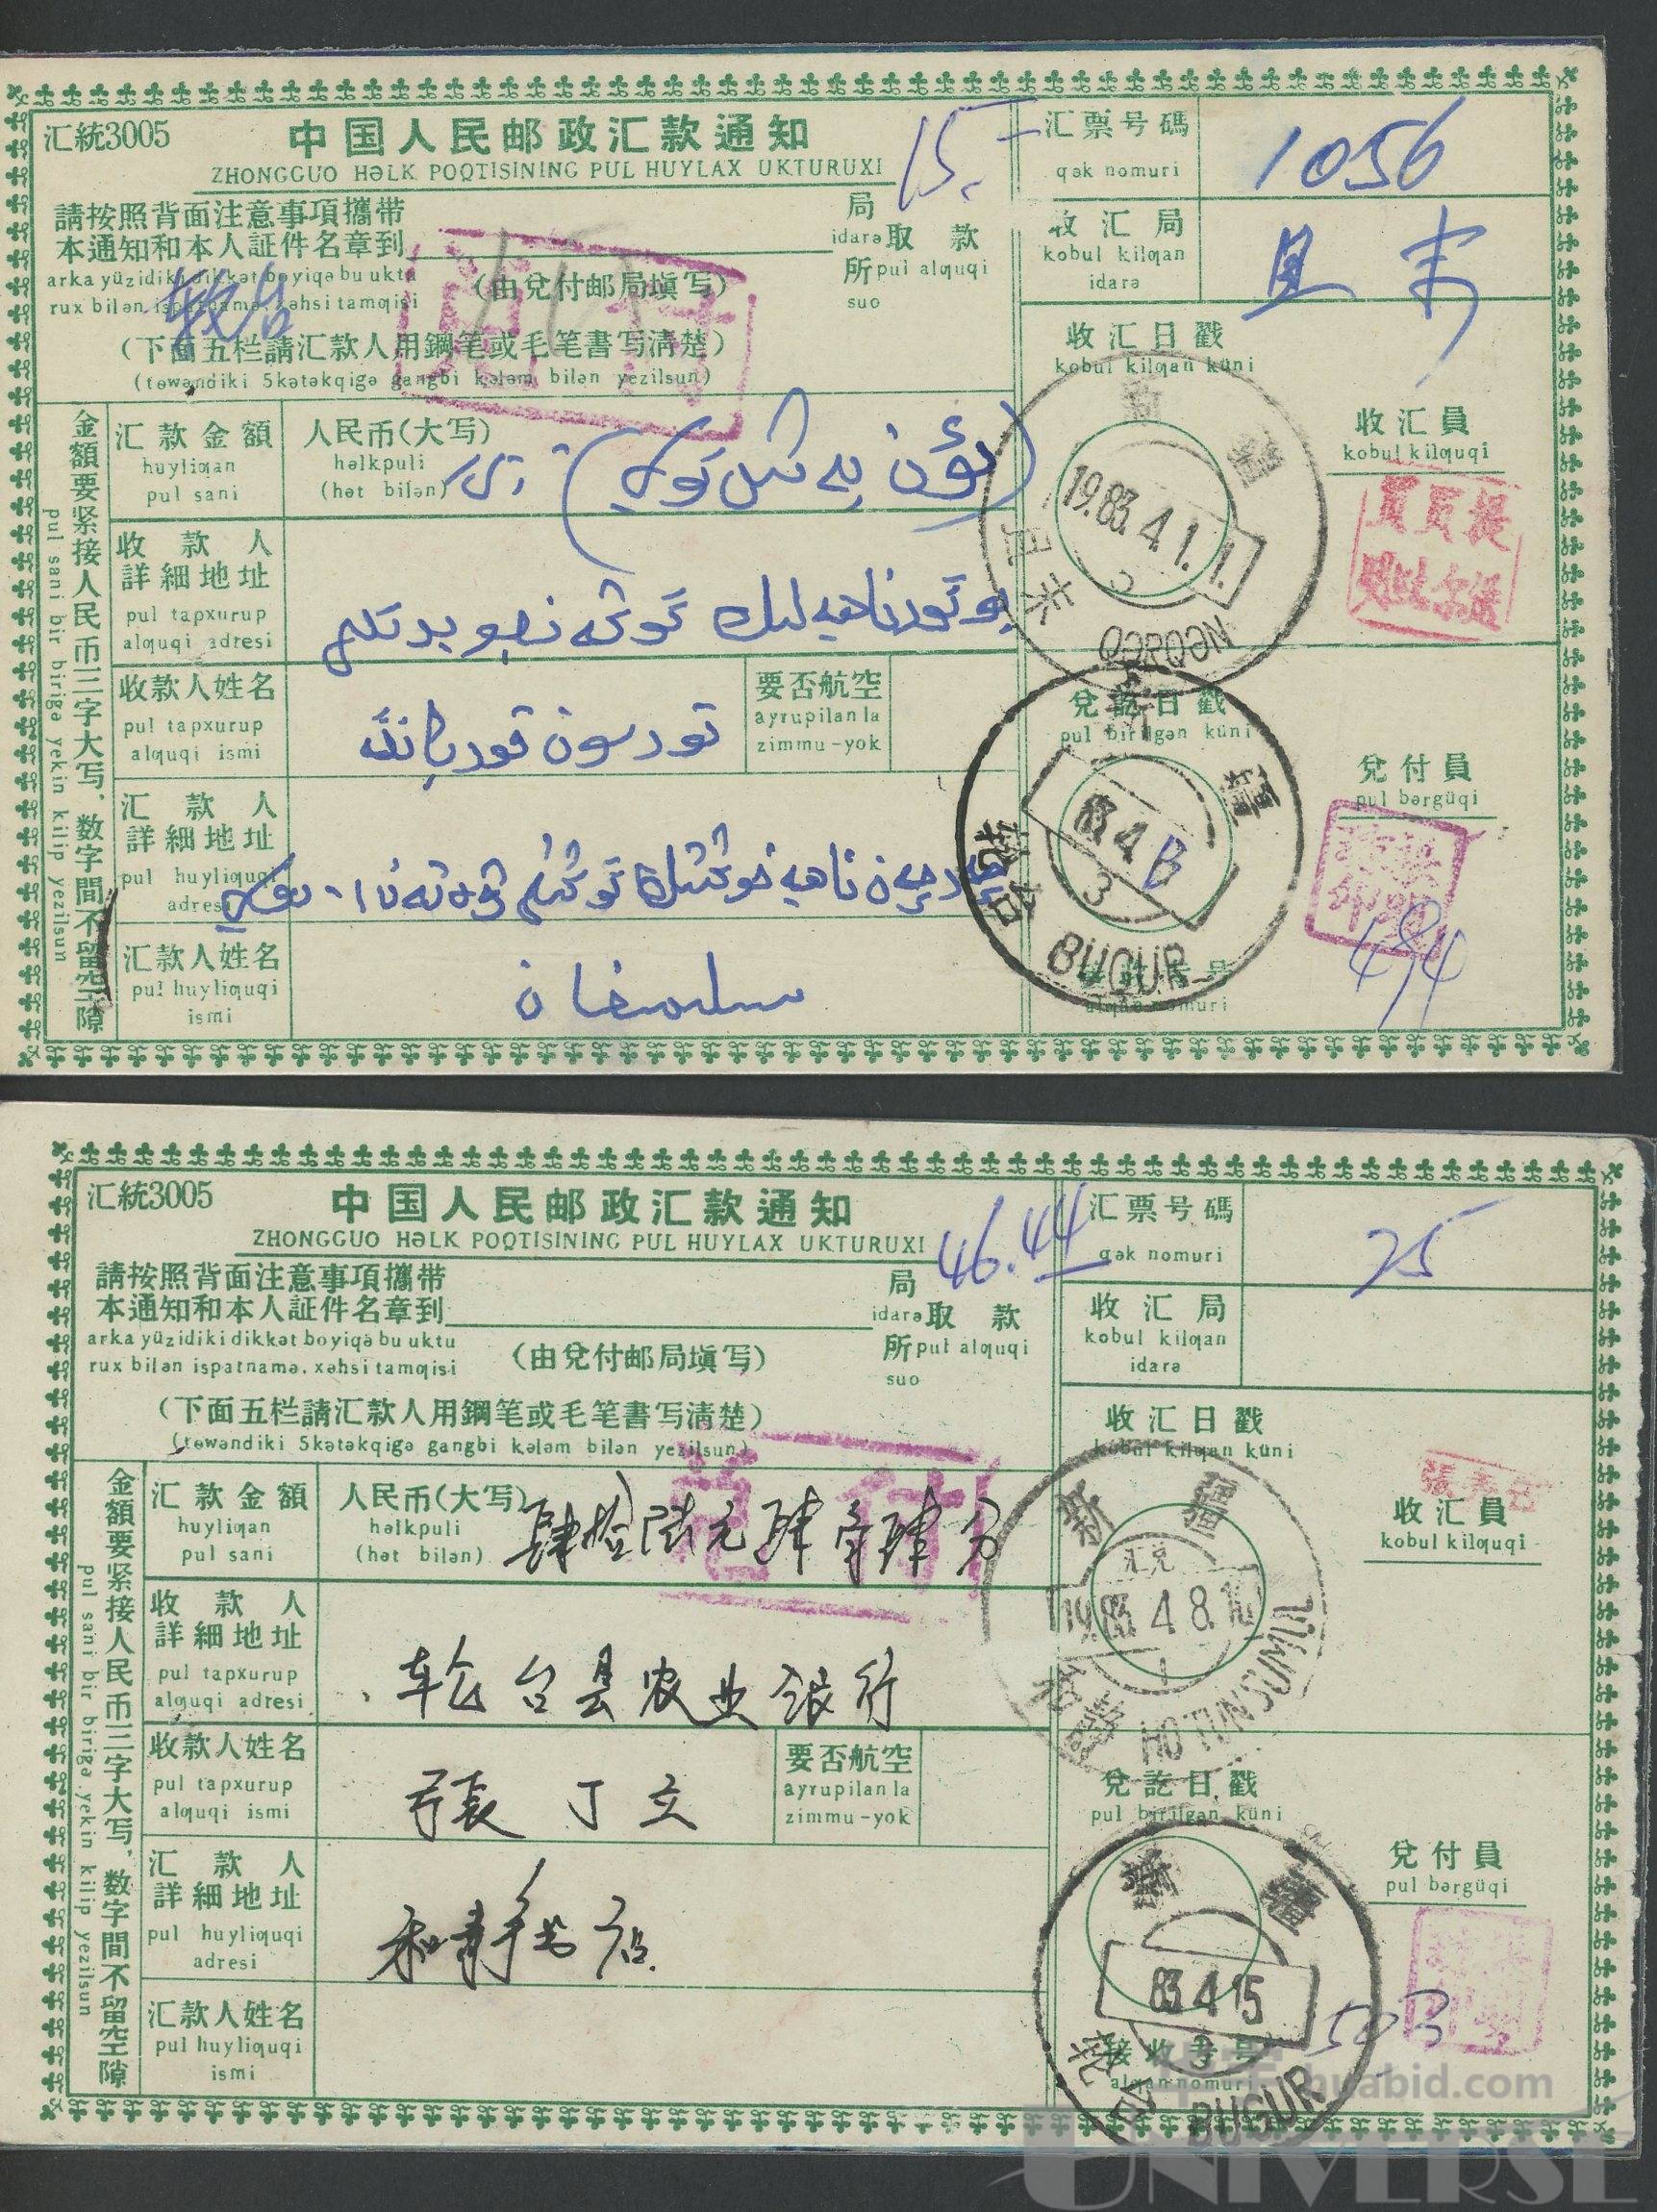 汇統3005
中国人民邮政汇款通知
ZHONGGUO HƏLK POQTISINING PUL HUYLAX UKTURUXI
15.-
請按照背面注意事項攜带
本通知和本人証件名章到
局
idarə
所
suo
取 款
pul alƣuqi
arka yüzidiki dikkət boyiqə bu uktu
rux bilən ispatnamə, xəhsi tamƣisi
(由兌付邮局塡写)
(下面五栏請汇款人用鋼笔或毛笔書写清楚)
(təwəndiki 5kətəkqigə gangbi kələm bilən yezilsun)
汇票号碼
qək nomuri
1056
收汇局
kobul kilƣan
idarə
且末
收汇日戳
kobul kilƣan küni
收汇員
kobul kilƣuqi
金額要紧接人民币三字大写、数字間不留空隙
pul sani bir birigə yekin kilip yezilsun
汇款金額
huyliƣan
pul sani
人民币(大写)
həlkpuli
(hət bilən)
收款人
詳細地址
pul tapxurup
alƣuqi adresi
收款人姓名
pul tapxurup
alƣuqi ismi
تۇرسۇن قۇربانغا
要否航空
ayrupilan la
zimmu-yok
汇款人
詳細地址
pul huyliƣuqi
adresi
汇款人姓名
pul huyliƣuqi
ismi
新疆
19.83.4.1.1.
2
且末
QƏRQƏN
兌訖日戳
pul birilgən küni
兌付員
pul bərgüqi
新疆
83.4.
3
轮台
BUGUR
494
汇統3005
中国人民邮政汇款通知
ZHONGGUO HƏLK POQTISINING PUL HUYLAX UKTURUXI
46.44
請按照背面注意事項攜带
本通知和本人証件名章到
局
idarə
所
suo
取 款
pul alƣuqi
arka yüzidiki dikkət boyiqə bu uktu
rux bilən ispatnamə, xəhsi tamƣisi
(由兌付邮局塡写)
(下面五栏請汇款人用鋼笔或毛笔書写清楚)
(təwəndiki 5kətəkqigə gangbi kələm bilən yezilsun)
汇票号碼
qək nomuri
75
收汇局
kobul kilƣan
idarə
收汇日戳
kobul kilƣan küni
收汇員
kobul kilƣuqi
金額要紧接人民币三字大写、数字間不留空隙
pul sani bir birigə yekin kilip yezilsun
汇款金額
huyliƣan
pul sani
人民币(大写)
həlkpuli
(hət bilən)
肆拾陆元肆角肆分
收款人
詳細地址
pul tapxurup
alƣuqi adresi
轮台县农业银行
收款人姓名
pul tapxurup
alƣuqi ismi
張丁立
要否航空
ayrupilan la
zimmu-yok
汇款人
詳細地址
pul huyliƣuqi
adresi
和静书店
汇款人姓名
pul huyliƣuqi
ismi
新疆
汇兑
1983.4.8.
1
和静
兌訖日戳
pul birilgən küni
兌付員
pul bərgüqi
新疆
83.4.15
3
轮台
BUGUR
接收号
alƣan nomuri
503
huabid.com
UNIVERSE